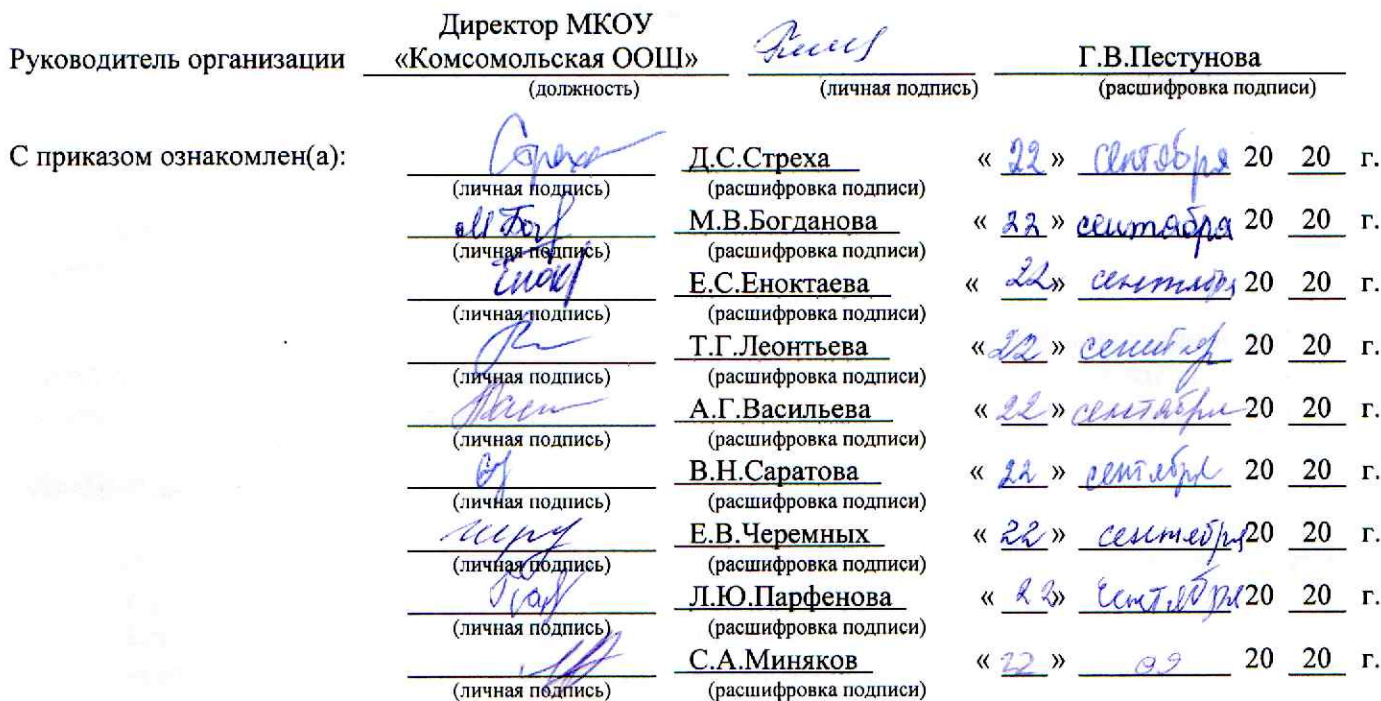 Директор МКОУ
Руководитель организации «Комсомольская ООШ» Г.В.Пестунова
(должность) (личная подпись) (расшифровка подписи)
С приказом ознакомлен(а): Д.С.Стреха « 22 » сентября 20 20 г.
(личная подпись) (расшифровка подписи)
М.В.Богданова « 22 » сентября 20 20 г.
(личная подпись) (расшифровка подписи)
Е.С.Еноктаева « 22 » сентября 20 20 г.
(личная подпись) (расшифровка подписи)
Т.Г.Леонтьева « 22 » 20 20 г.
(личная подпись) (расшифровка подписи)
А.Г.Васильева « 22 » сентября 20 20 г.
(личная подпись) (расшифровка подписи)
В.Н.Саратова « 22 » сентября 20 20 г.
(личная подпись) (расшифровка подписи)
Е.В.Черемных « 22 » сентября 20 20 г.
(личная подпись) (расшифровка подписи)
Л.Ю.Парфенова « 22 » сентября 20 20 г.
(личная подпись) (расшифровка подписи)
С.А.Миняков « 22 » 09 20 20 г.
(личная подпись) (расшифровка подписи)